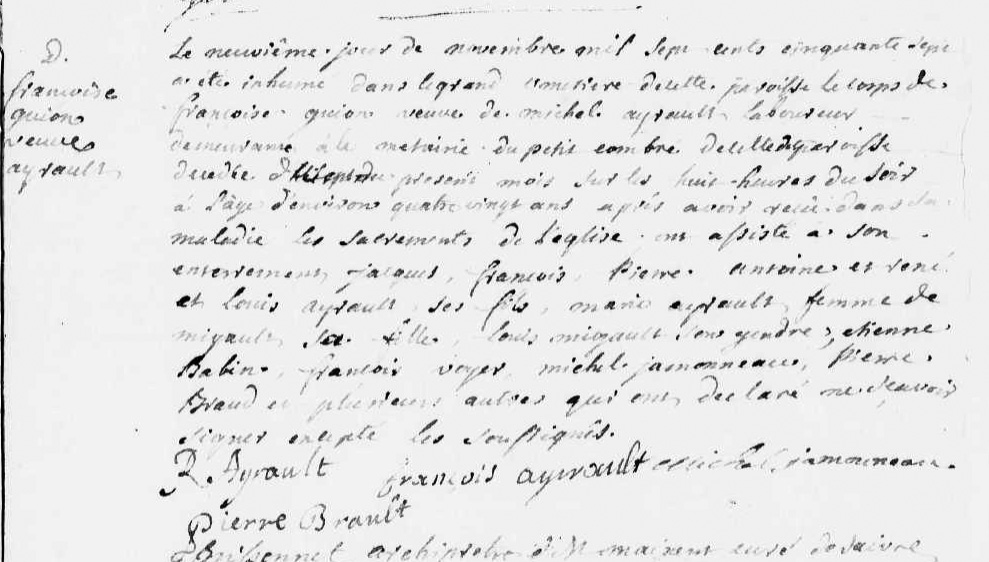 D.
françoise
quion
veuve
ayrault
Le neuviême jour de novembre mil sept cents cinquante sept
a eté inhumé dans le grand cimetiere de cette paroisse le corps de
françoise quion veuve de michel ayrault laboureur
demeurante à la metairie du petit combre de cette dite paroisse
decedée du present mois sur les huit heures du soir
à l'âge d'environ quatre vingt ans après avoir reçu dans sa
maladie les sacrements de l'église ont assisté a son
enterrement jacques, françois, Pierre antoine et rené
et louis ayrault, ses fils, marie ayrault femme de
migault sa fille, louis migault son gendre, etienne
Babin, françois voyer, michel jamonneau, Pierre
Braud et plusieurs autres qui ont declaré ne sçavoir
signer excepté les soussignés.
R Ayrault françois ayrault Michel jamonneau.
Pierre Brault
archiprebtre de St maixent curé de saivre